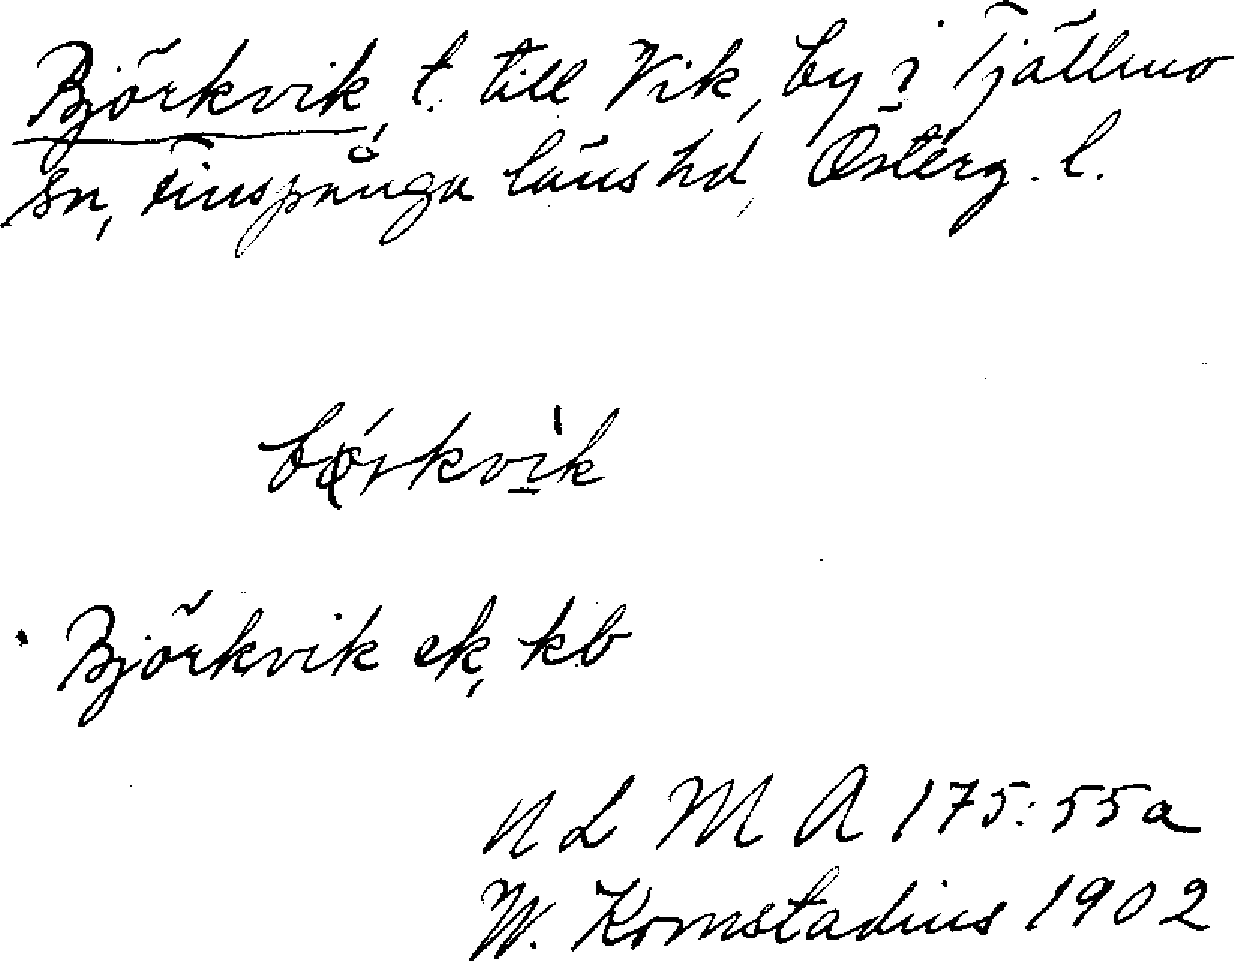 Björkvik, t. till Vik, by i Tjällmo
sn, Finspånga läns hd, Österg. l.
Björkvik ek, kb
N L M A 175:55a
W. Kornstadius 1902